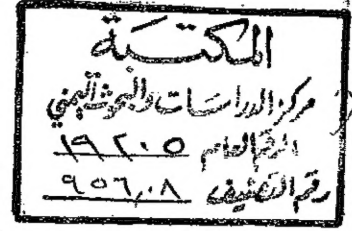 المكتبة
مركز الدراسات والبحوث اليمني
الرقم العام ١٩٢٠٥
رقم التصنيف ٩٥٦,٠٨